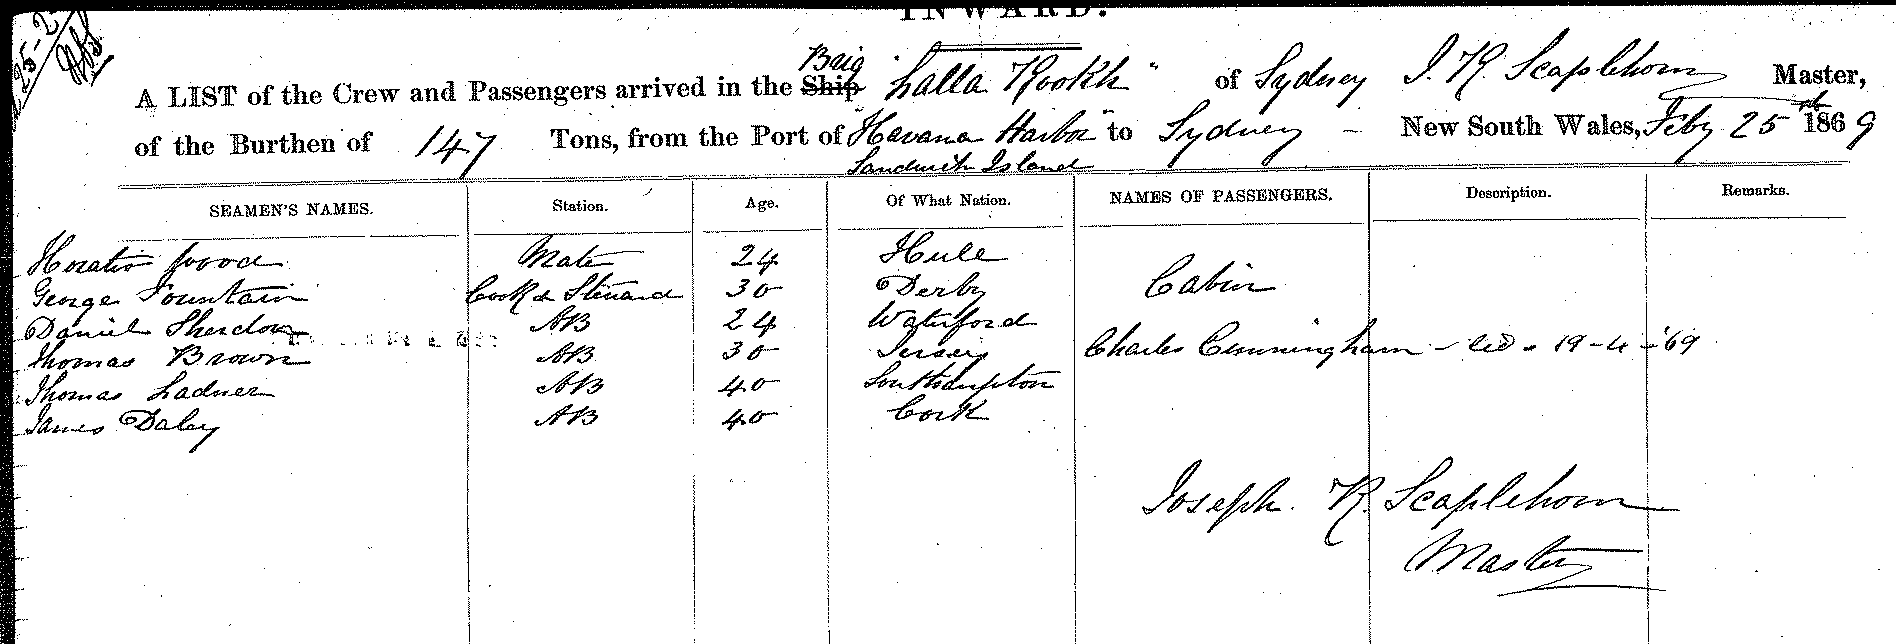 INWARD.
25-2
A LIST of the Crew and Passengers arrived in the Ship Brig "Lalla Rookh" of Sydney J. R. Scaplehorn Master,
of the Burthen of 147 Tons, from the Port of Havana Harbor to Sydney - New South Wales, Feby 25 1869
Sandwich Island
SEAMEN'S NAMES. Station. Age. Of What Nation. NAMES OF PASSENGERS. Description. Remarks.
Horatio Wood Mate 24 Hull
George Fountain Cook & Steward 30 Derby Cabin
Daniel AB 24 Waterford
Thomas Brown AB 30 Jersey Charles Cunningham - 19-4-69
Thomas Ladner AB 40 Southampton
James Daley AB 40 Cork
Joseph. R. Scaplehorn
Master